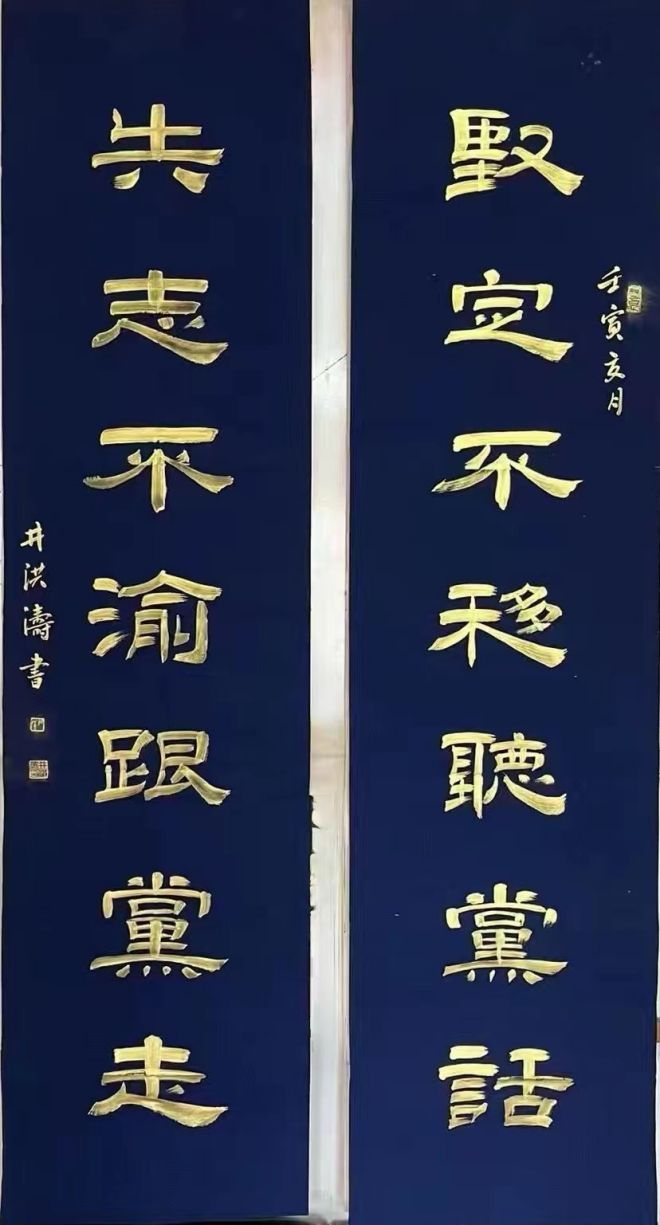 壬寅亥月
堅定不移聽黨話
矢志不渝跟黨走
井洪濤書